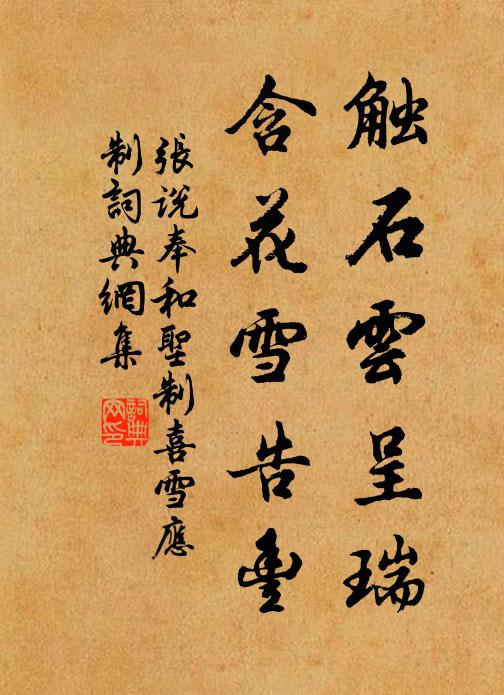 触石雲呈瑞
含花雪告豊
張説奉和聖制喜雪應
制詞典網集
詞典
网印